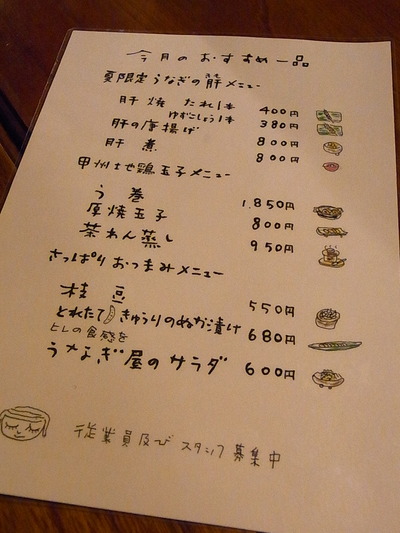 今月のおすすめ一品
夏限定うなぎの肝メニュー
肝焼 たれ1本 400円
ゆずこしょう1本 380円
肝の唐揚げ 800円
肝煮 800円
甲州地鶏玉子メニュー
う巻 1.850円
厚焼玉子 800円
茶わん蒸し 950円
さっぱりおつまみメニュー
枝豆 550円
とれたてきゅうりのぬか漬け 680円
うなぎ屋のサラダ 600円
従業員及びスタッフ募集中